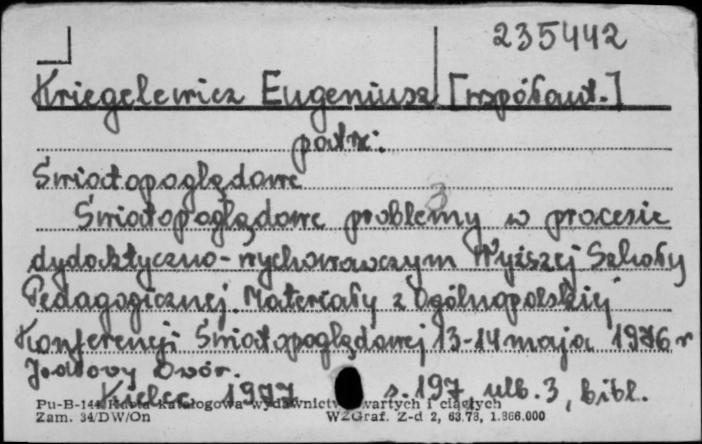 235442
Kriegelewicz Eugeniusz [współaut.]
patrz:
Światopoglądowe
Światopoglądowe problemy w procesie
dydaktyczno-wychowawczym Wyższej Szkoły
Pedagogicznej. Materiały z Ogólnopolskiej
Konferencji Światopoglądowej 13-14 maja 1976 r
Jodłowy Dwór.
Kielce 1977 s. 197 nlb. 3, bibl.
Pu-B-144 Karta katalogowa wydawnictw zwartych i ciągłych
Zam. 34/DW/On WZGraf. Z-d 2, 63.78, 1.866.000